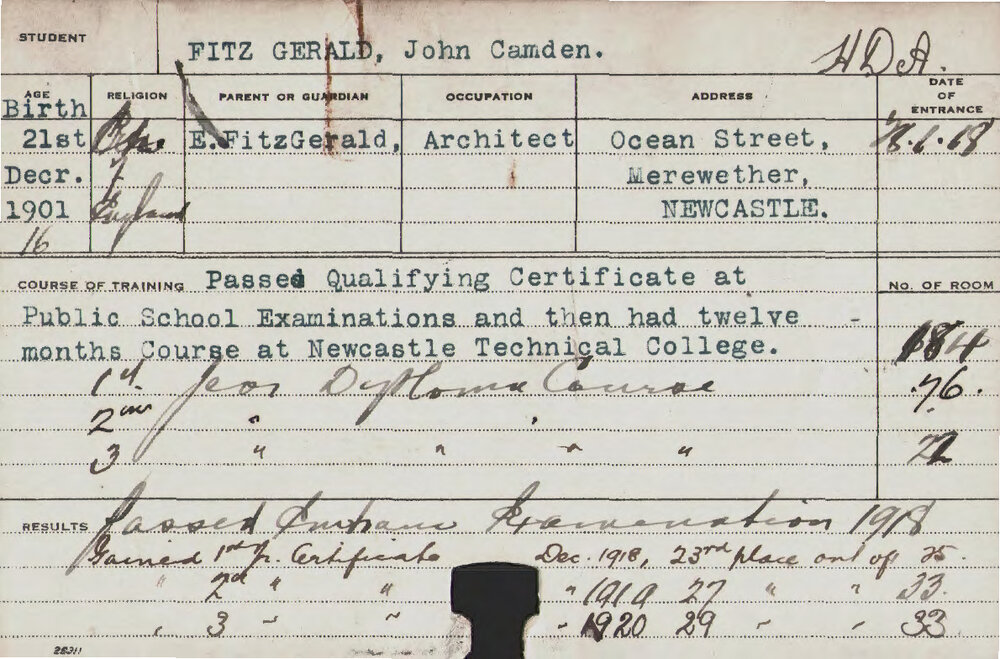 STUDENT FITZ GERALD, John Camden. H D A.
AGE RELIGION PARENT OR GUARDIAN OCCUPATION ADDRESS DATE OF ENTRANCE
Birth
21st Ch. E. FitzGerald, Architect Ocean Street,
Decr. of Merewether,
1901 England NEWCASTLE.
16
COURSE OF TRAINING Passed Qualifying Certificate at NO. OF ROOM
Public School Examinations and then had twelve -
months Course at Newcastle Technical College.
1st Year Diploma Course 76.
2nd " "
3 " " " "
RESULTS Passed Entrance Examination 1918
Gained 1st Yr. Certificate Dec. 1918, 23rd place out of 25.
" 2d " " " 1919 27 " " 33.
" 3 " " " 1920 29 " " 33
25311